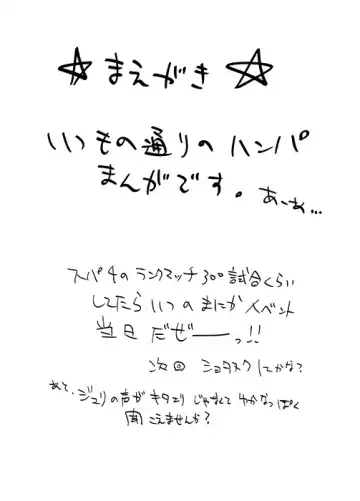 ☆ まえがき ☆
いつもの通りのハンパ
まんがです。あーぁ…
スパ4のランクマッチ300試合くらい
してたらいつのまにかイベント
当日だぜーーっ!!
次回 ショタスクにかな?
あと、ジュリの声がキタエリじゃなくてわかなっぽく
聞こえませんか?